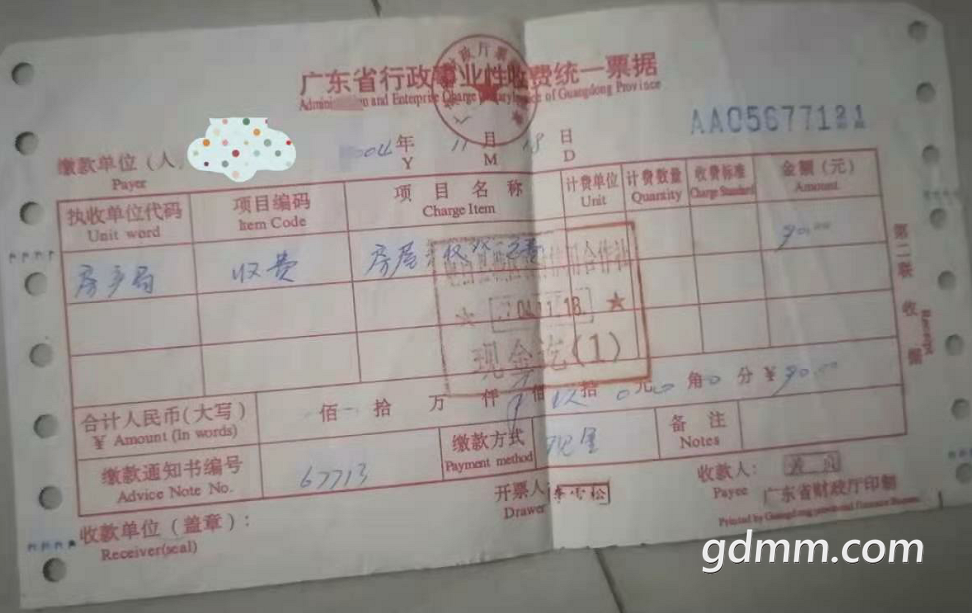 广东省行政事业性收费统一票据
of Guangdong Province
AA05677121
缴款单位（人
Payer
年 11 月 18 日
Y M D
执收单位代码 项目编码 项目名称 计费单位 计费数量 收费标准 金额（元）
Unit word Item Code Charge Item Unit Quanxity Charge Standard Amount
房产局 收费 房屋
90.00
第二联 收据
★ 04.11.18 ★
现金讫(1)
合计人民币(大写) 佰 拾 万 仟 佰 拾 0 元 0 角 0 分 ￥90.00
￥ Amount (In words)
缴款通知书编号 67713 缴款方式 现金 备注
Advice Note No. Payment method Notes
开票人 李雪松 收款人:
Drawer Payee
广东省财政厅印制
Printed by Guangdong provincial Finance Bureau
收款单位（盖章）:
Receiver(seal)
gdmm.com